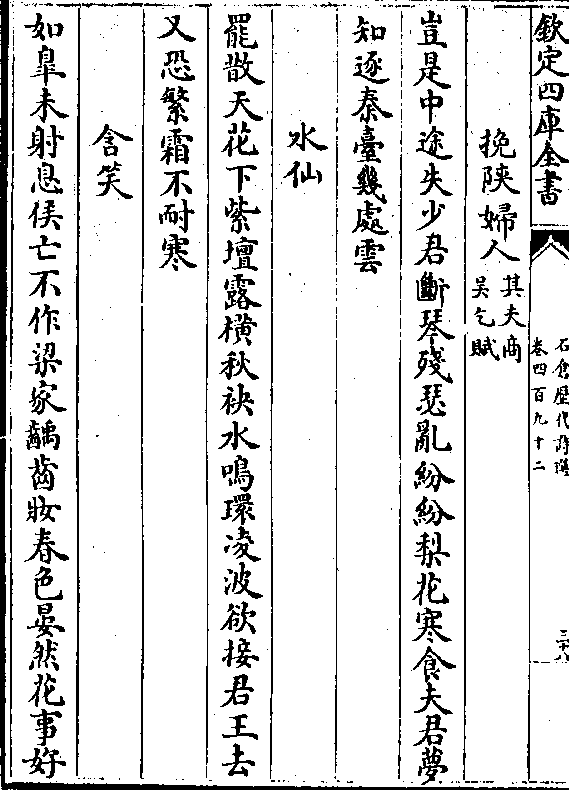 欽定四庫全書
石倉歷代詩選
卷四百九十二
三十八
挽陝婦人其夫商
吴乞賦
豈是中途失少君斷琴殘瑟亂紛紛梨花寒食夫君夢
知逐秦臺幾處雲
水仙
罷散天花下紫壇露橫秋袂水鳴環凌波欲接君王去
又恐繁霜不耐寒
含笑
如臯未射息侯亡不作梁家齲齒妝春色晏然花事好